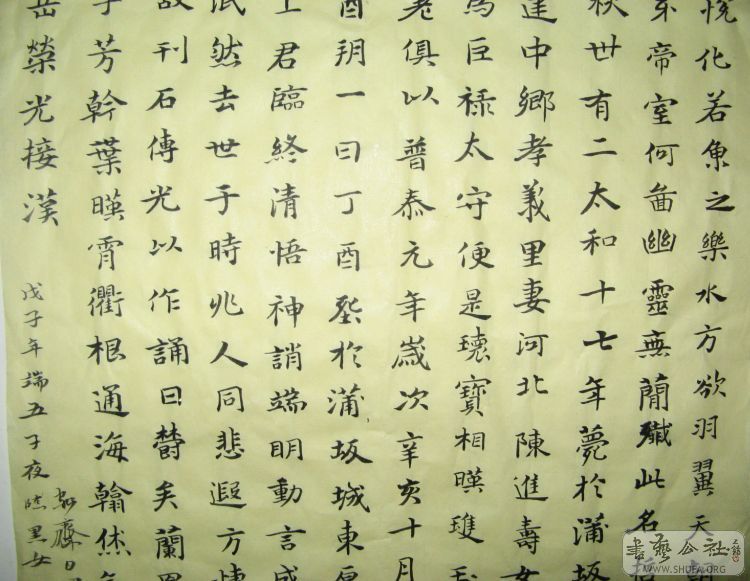 悦化若魚之樂水方欲羽翼天
帝室何啚幽靈無蕑殲此名
秋卅有二太和十七年薨於蒲坂
建中鄉孝義里妻河北陳進壽女
爲巨禄太守便是瓌寶相暎瓊玉
俱以普泰元年歲次辛亥十月
酉朔一日丁酉塟於蒲坂城東原
上君臨終清悟神誚端明動言成
泯然去世于時兆人同悲遐方悽
故刊石傳光以作誦曰欝矣蘭胄
乎芳幹葉暎霄衢根通海翰烋氣
岳榮光接漢
戊子年端五子夜臨黑女
齋日
書藝公社
WWW.SHUFA.ORG